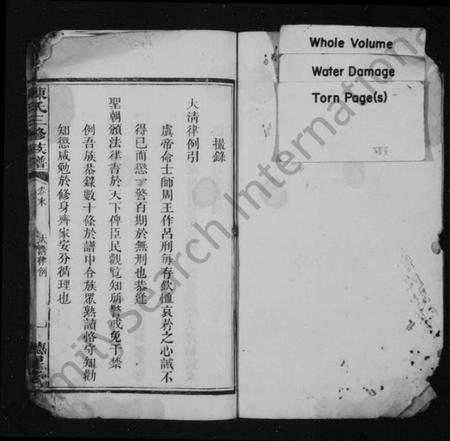 Whole Volume
Water Damage
Torn Page(s)
撮錄
大清律例引
虞帝命士師周王作呂刑每存欽恤哀矜之心誠不
得已而懲一警百期於無刑也恭逢
聖朝頒法律書於天下俾臣民觀覽知所警戒免干禁
例吾族恭錄數十條於譜中合族眾熟讀恪守知勸
知懲咸勉於修身齊家安分循理也
陳氏三修族譜
卷末
大清律例
一
FamilySearch International